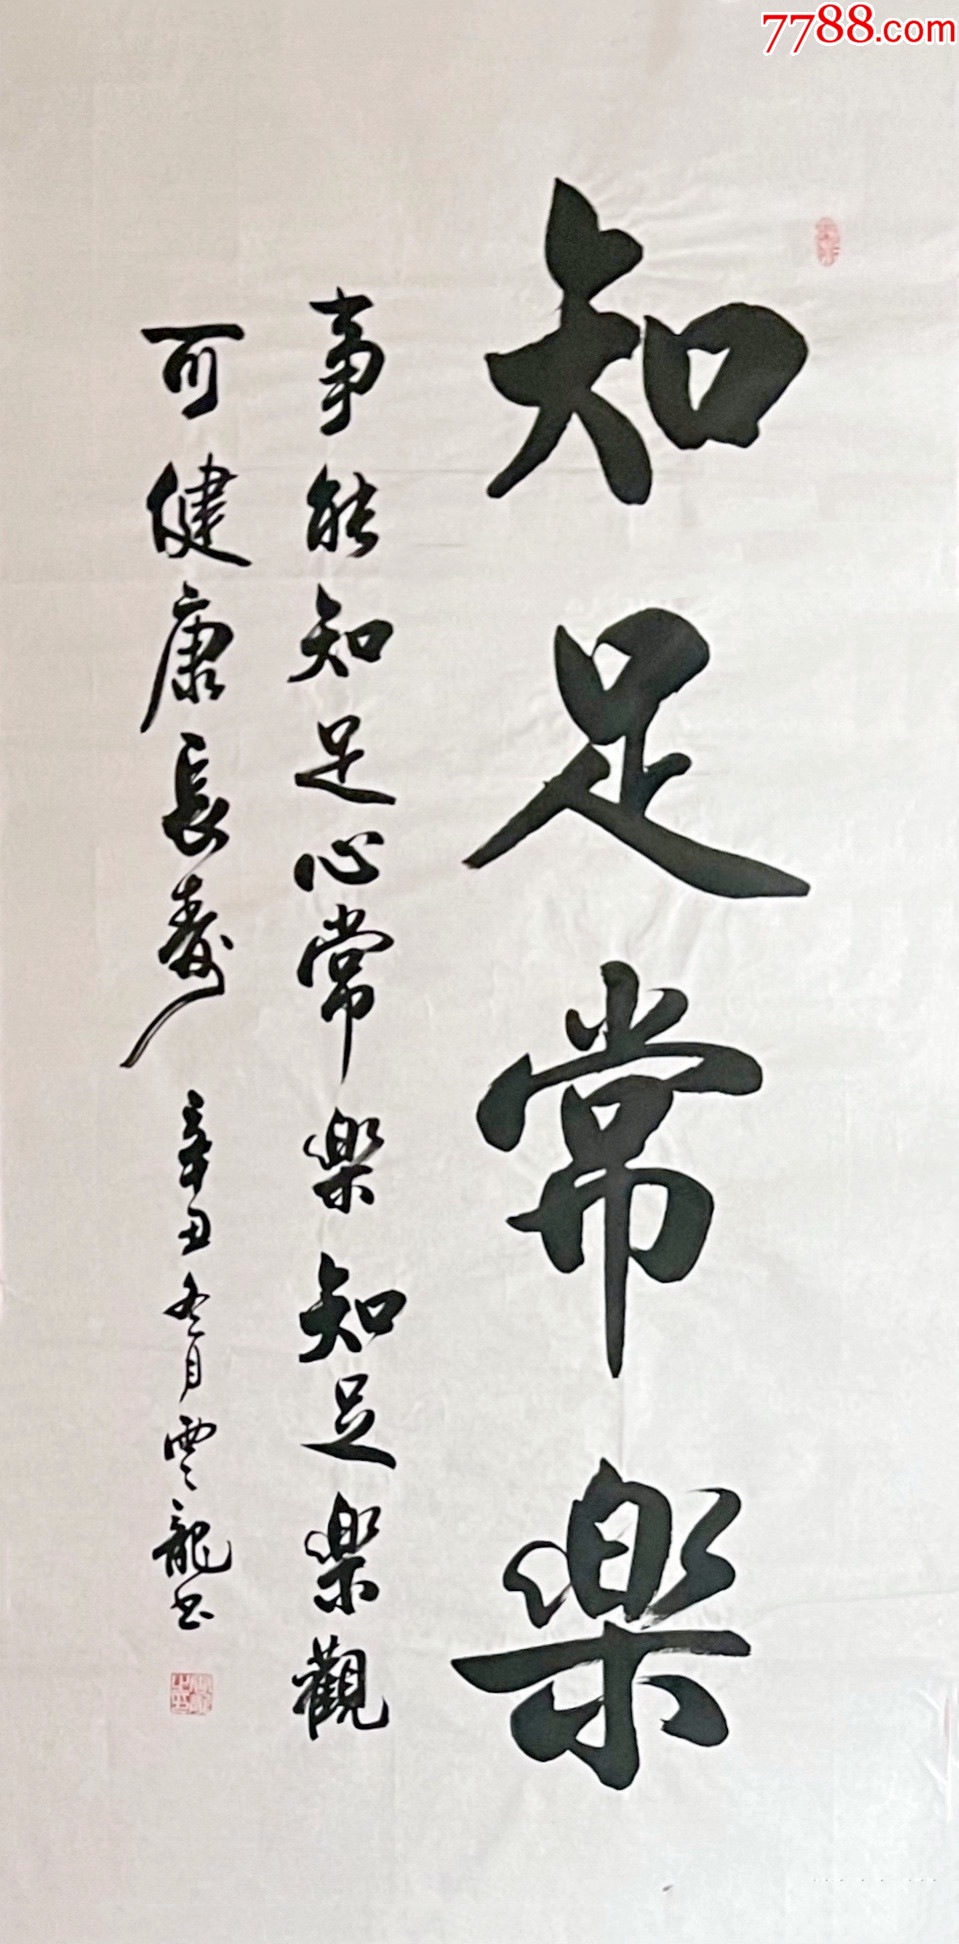 7788.com
知足常樂
事能知足心常樂知足樂觀
可健康長壽 辛丑冬月雲龍书